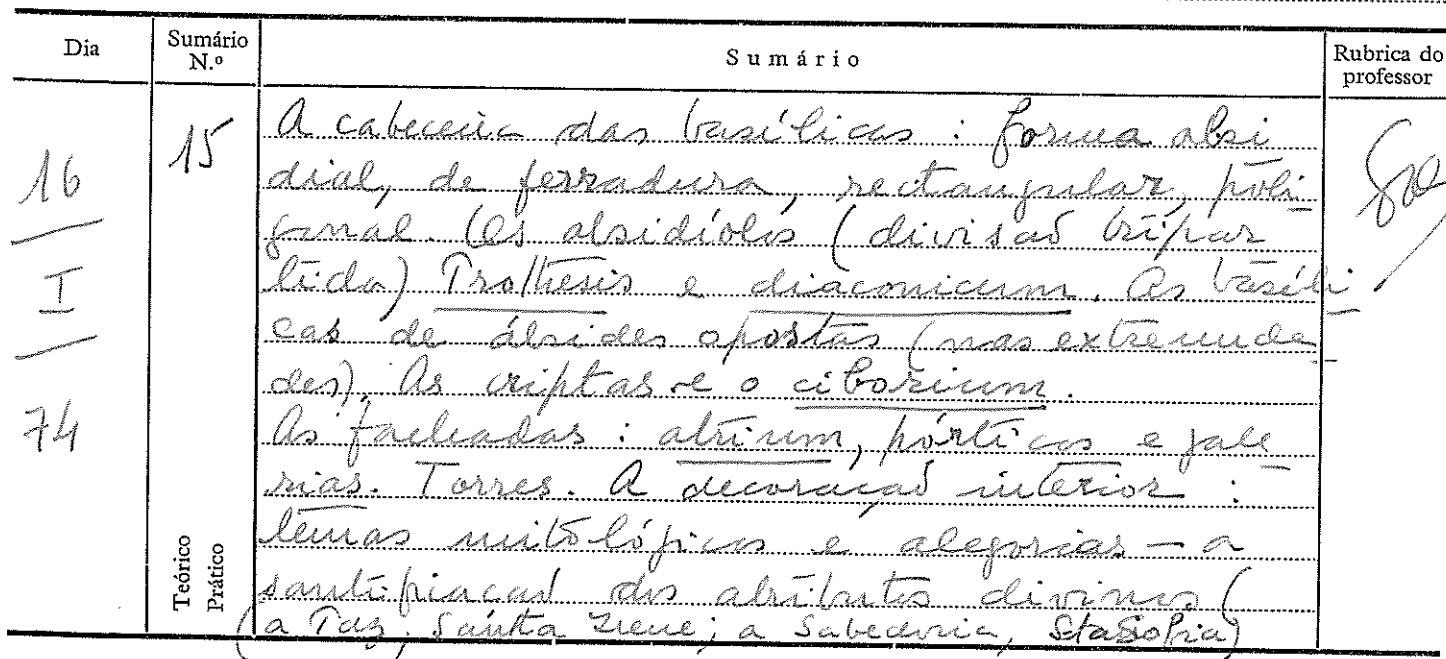 Dia Sumário N.º Sumário Rubrica do professor
16 / I / 74
15
A cabeceira das basílicas : forma absi
dial, de ferradura, rectangular, poli-
gonal. Os absidíolos (divisão tripar
tida) Prothesis e diaconicum. As basíli-
cas de ábsides opostas (nas extremida-
des). As criptas e o ciborium.
As fachadas : atrium, pórticos e gale-
rias. Torres. A decoração interior :
temas mitológicos e alegorias — a
santificação dos atributos divinos (
(a Paz, Santa Irene; a Sabedoria, Sta Sofia)
Teórico
Prático